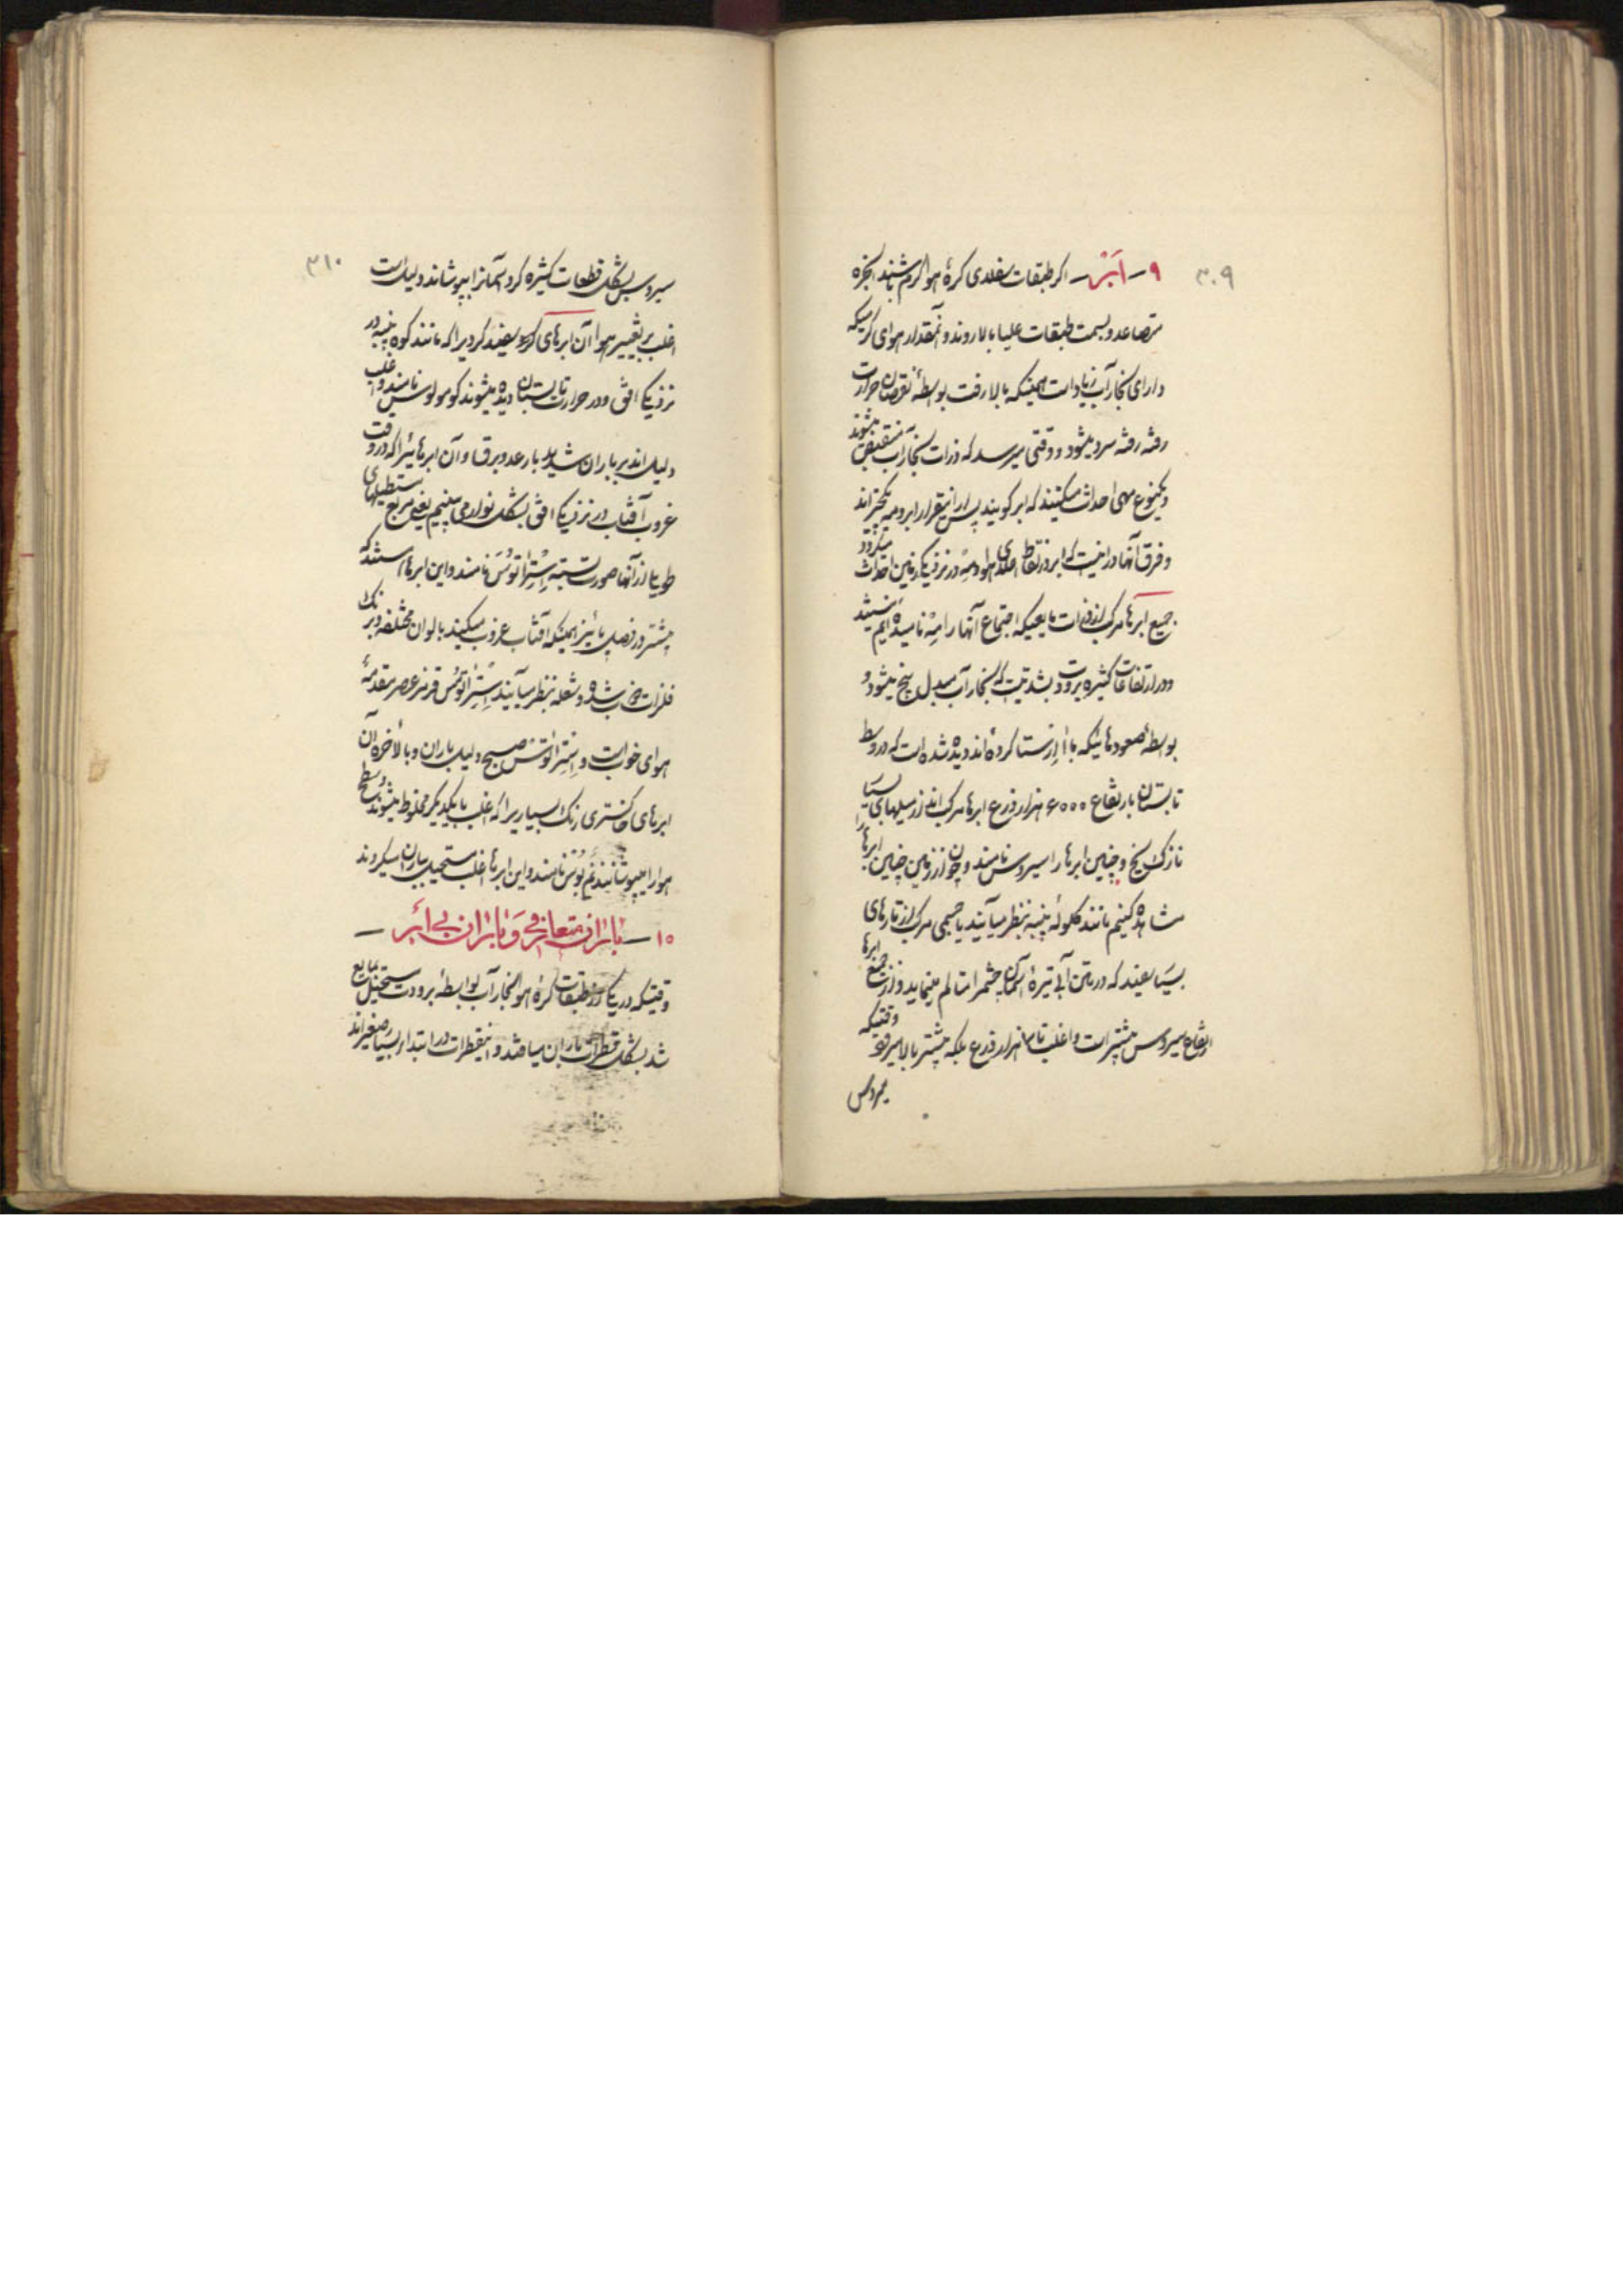 ۳۰۹
۹ - اَبْر - اگر طبقات سفلای کرهٔ هوا گرم باشند ابخره
متصاعد و بسمت طبقات علیا بالا روند و آنمقدار هوای گرمیکه
دارای بخار آب زیاد است همینکه بالا رفت بواسطهٔ نقصان حرارت
رفته رفته سرد میشود و وقتی میرسد که ذرات بخار آب منقبض میشوند
و یکنوع مهی احداث میکنند که ابر گویند پس از اینقرار ابر و مه یکچیزاند
و فرق آنها در اینست که ابر در نقاط اعلای هوا و مه در نزدیکی زمین احداث میگردد
جمیع ابرها مرکب از ذرات مایعیکه اجتماع آنها را مه نامیده‌ایم نیستند
در ارتفاعات کثیره برودت بشدتیست که بخار آب مبدل بیخ میشود و
بواسطهٔ صعودهائیکه با اِارستا کرده‌اند دیده شده است که در وسط
تابستان بارتفاع ۶۰۰۰ هزار ذرع ابرها مرکب‌اند از میلهای بسیار
نازک یخ و چنین ابرها را سیروس نامند و چون از زمین چنین ابرها را
مشاهده کنیم مانند گلولهٔ پنبه بنظر میآیند یا جسمی مرکب از تارهای
بسیار سفیدند که در متن آبی تیرهٔ آسمان چشم را متالم مینماید و از جمیع ابرها
ارتفاع سیروس بیشتر است و اغلب تا ۱۰ هزار ذرع بلکه بیشتر بالا میرود وقتیکه
سیروس
۳۱۰
سیروس بشکل قطعات کثیره گرد آسمانرا بپوشاند دلیل است
اغلب بر تغییر هوا آن ابرهای گرد سفید گردیرا که مانند کوه پنبه در
نزدیکی افق و در حرارت تابستان دیده میشوند کومولوس نامند و اغلب
دلیل‌اند بر باران شدید با رعد و برق و آن ابرهائیرا که در وقت
غروب آفتاب در نزدیکی افق بشکل نوار می‌بینیم یعنی مربع مستطیلهای
طویل از آنها صورت بسته اِسْتِراتوُسْ نامند و این ابرها هستند که
بیشتر در فصل پائیز همینکه آفتاب غروب میکند بالوان مختلفه و برنگ
فلزات مذاب شده و شعله بنظر میآیند اِسْتِراتوُسْ قرمز عصر مقدمهٔ
هوای خوبست و اِسْتِراتوُسْ صبح دلیل باران و بالاخره آن
ابرهای خاکستری رنگ بسیاریرا که اغلب با یکدیگر مخلوط میشوند و سطح
هوا را میپوشانند نَمْ‌بُوسْ نامند و این ابرها اغلب مستحیل بباران میگردند
۱۰ - باران متعارفی و باران بی ابر -
وقتیکه در یکی از طبقات کرهٔ هوا بخار آب بواسطهٔ برودت مستحیل بمایع
شد بشکل قطرات باران میافتد و این قطرات در ابتدا بسیار صغیراند